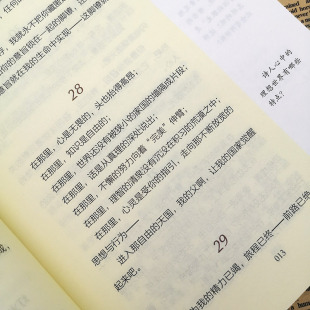 28
在那里，心是无畏的，头也抬得高昂；
在那里，知识是自由的；
在那里，世界还没有被狭小的家国的墙隔成片段；
在那里，话是从真理的深处说出；
在那里，不懈的努力向着“完美”伸臂；
在那里，理智的清泉没有沉没在积习的荒漠之中；
在那里，心灵是受你的指引，走向那不断放宽的
思想与行为——
进入那自由的天国，我的父啊，让我的国家觉醒
起来吧。
29
013
诗人心中的
理想世界有哪些
特点？